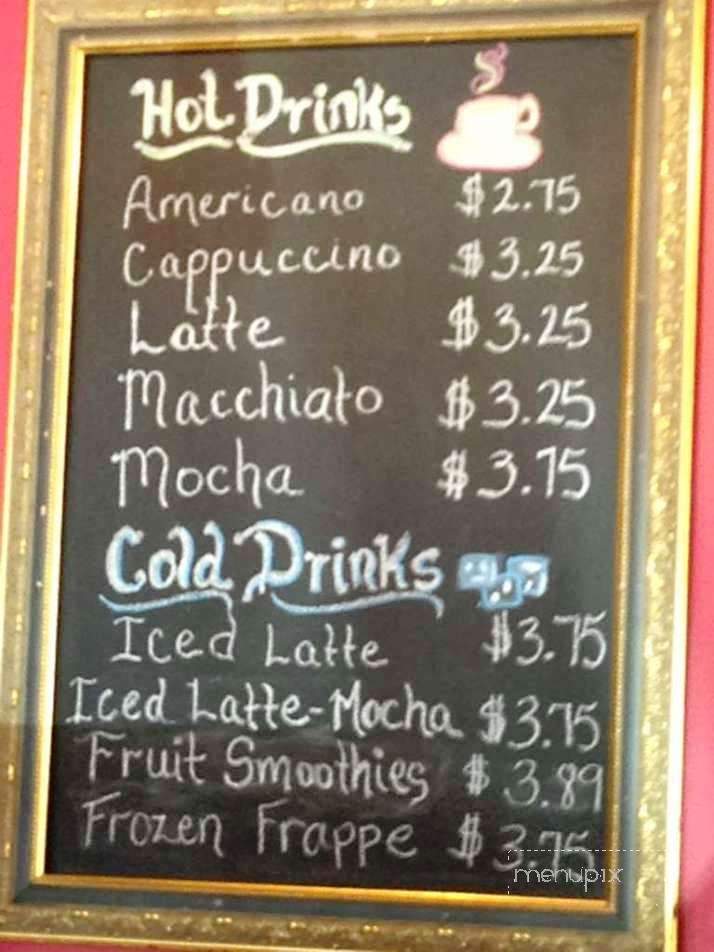 Hot Drinks
Americano $2.75
Cappuccino $3.25
Latte $3.25
Macchiato $3.25
Mocha $3.75
Cold Drinks
Iced Latte $3.75
Iced Latte-Mocha $3.75
Fruit Smoothies $3.89
Frozen Frappe $3.75
menupix